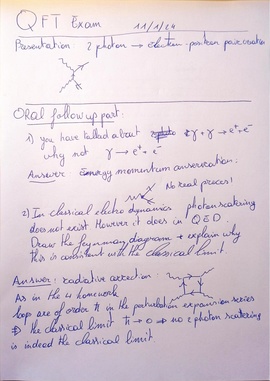 QFT Exam 11/1/24
Presentation 2 photon → electron-positron pair creation
Oral follow up part:
1) you have talked about γ+γ → e⁺+e⁻
why not γ → e⁺+e⁻
Answer Energy momentum conservation.
No real process!
2) In classical electrodynamics photon scattering
does not exist. However it does in QED.
Draw the feynman diagram + explain why
this is consistent with the classical limit.
Answer: radiative correction:
As in the 4 homework
loop are of order ħ in the perturbation expansion series
⇒ the classical limit ħ → 0 ⇒ no 2 photon scattering
is indeed the classical limit